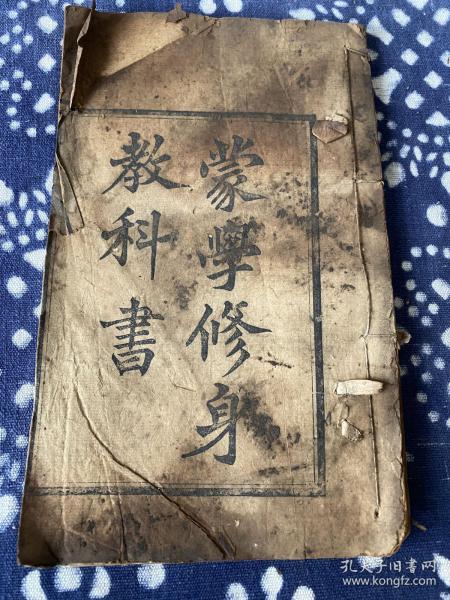 蒙學修身
教科書
孔夫子旧书网
www.kongfz.com